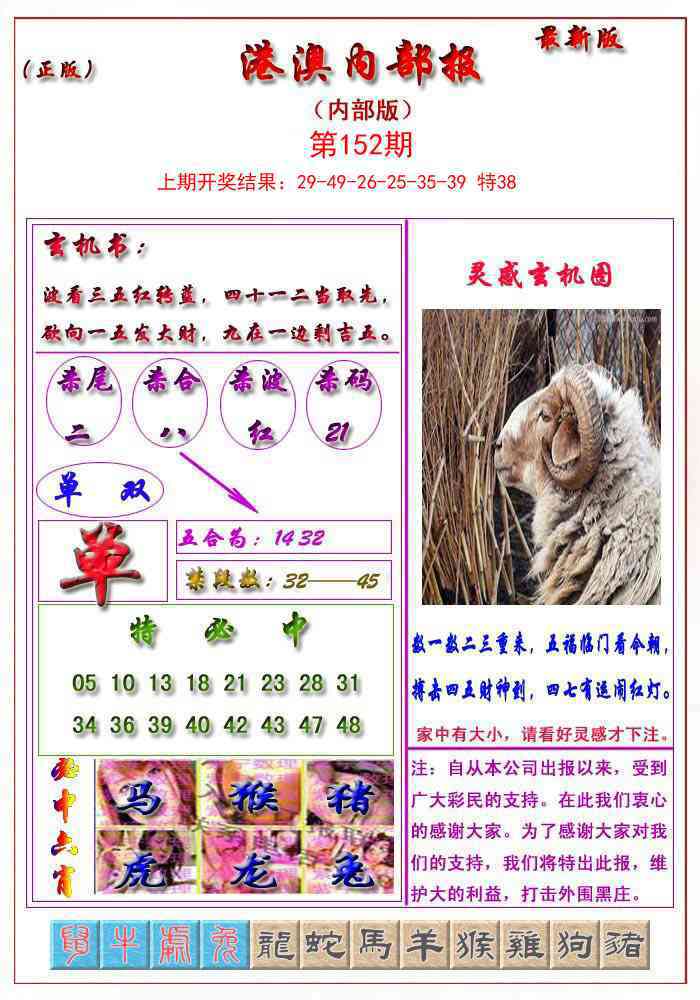 （正版）
港澳内部报
最新版
（内部版）
第152期
上期开奖结果：29-49-26-25-35-39 特38
玄机书：
波看三五红转蓝，四十一二当取先，
欲向一五发大财，九在一边剩吉五。
杀尾
二
杀合
八
杀波
红
杀码
21
单 双
单
五合为：14 32
禁段数：32——45
特 必 中
05 10 13 18 21 23 28 31
34 36 39 40 42 43 47 48
必中六肖
马 猴 猪
虎 龙 兔
灵感玄机图
数一数二三重来，五福临门看今朝，
搏击四五财神到，四七有运闹红灯。
家中有大小，请看好灵感才下注。
注：自从本公司出报以来，受到
广大彩民的支持。在此我们衷心
的感谢大家。为了感谢大家对我
们的支持，我们将特出此报，维
护大的利益，打击外围黑庄。
鼠 牛 虎 兔 龍 蛇 馬 羊 猴 雞 狗 豬